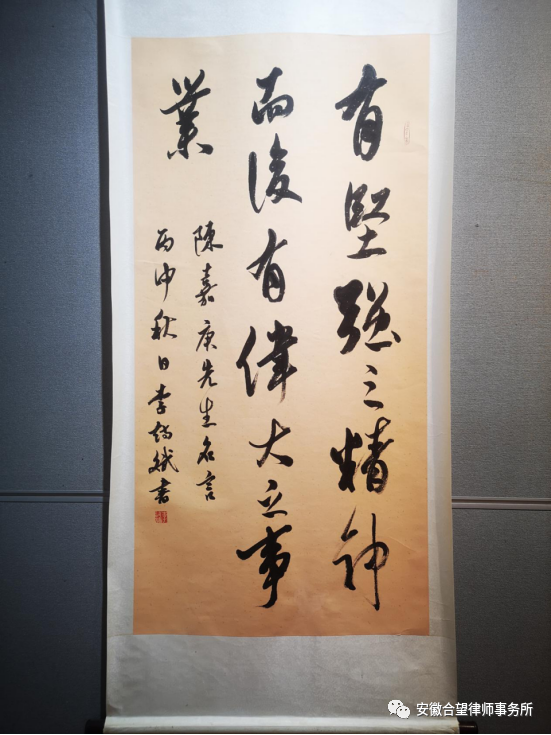 有堅強之精神
而後有偉大之事
業
陳嘉庚先生名言
丙申秋日李绮娥書
安徽合望律师事务所